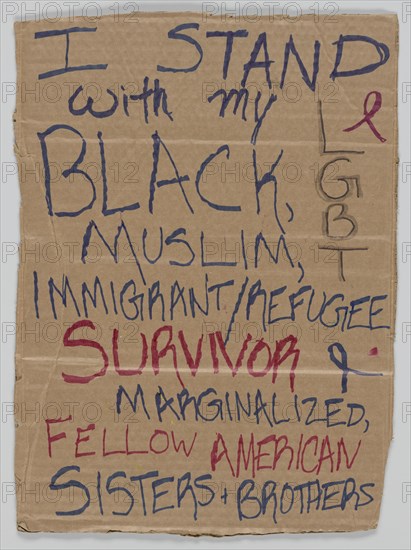 I STAND
with my
LGBT
BLACK,
MUSLIM,
IMMIGRANT/REFUGEE
SURVIVOR
MARGINALIZED,
FELLOW AMERICAN
SISTERS + BROTHERS
PHOTO 12